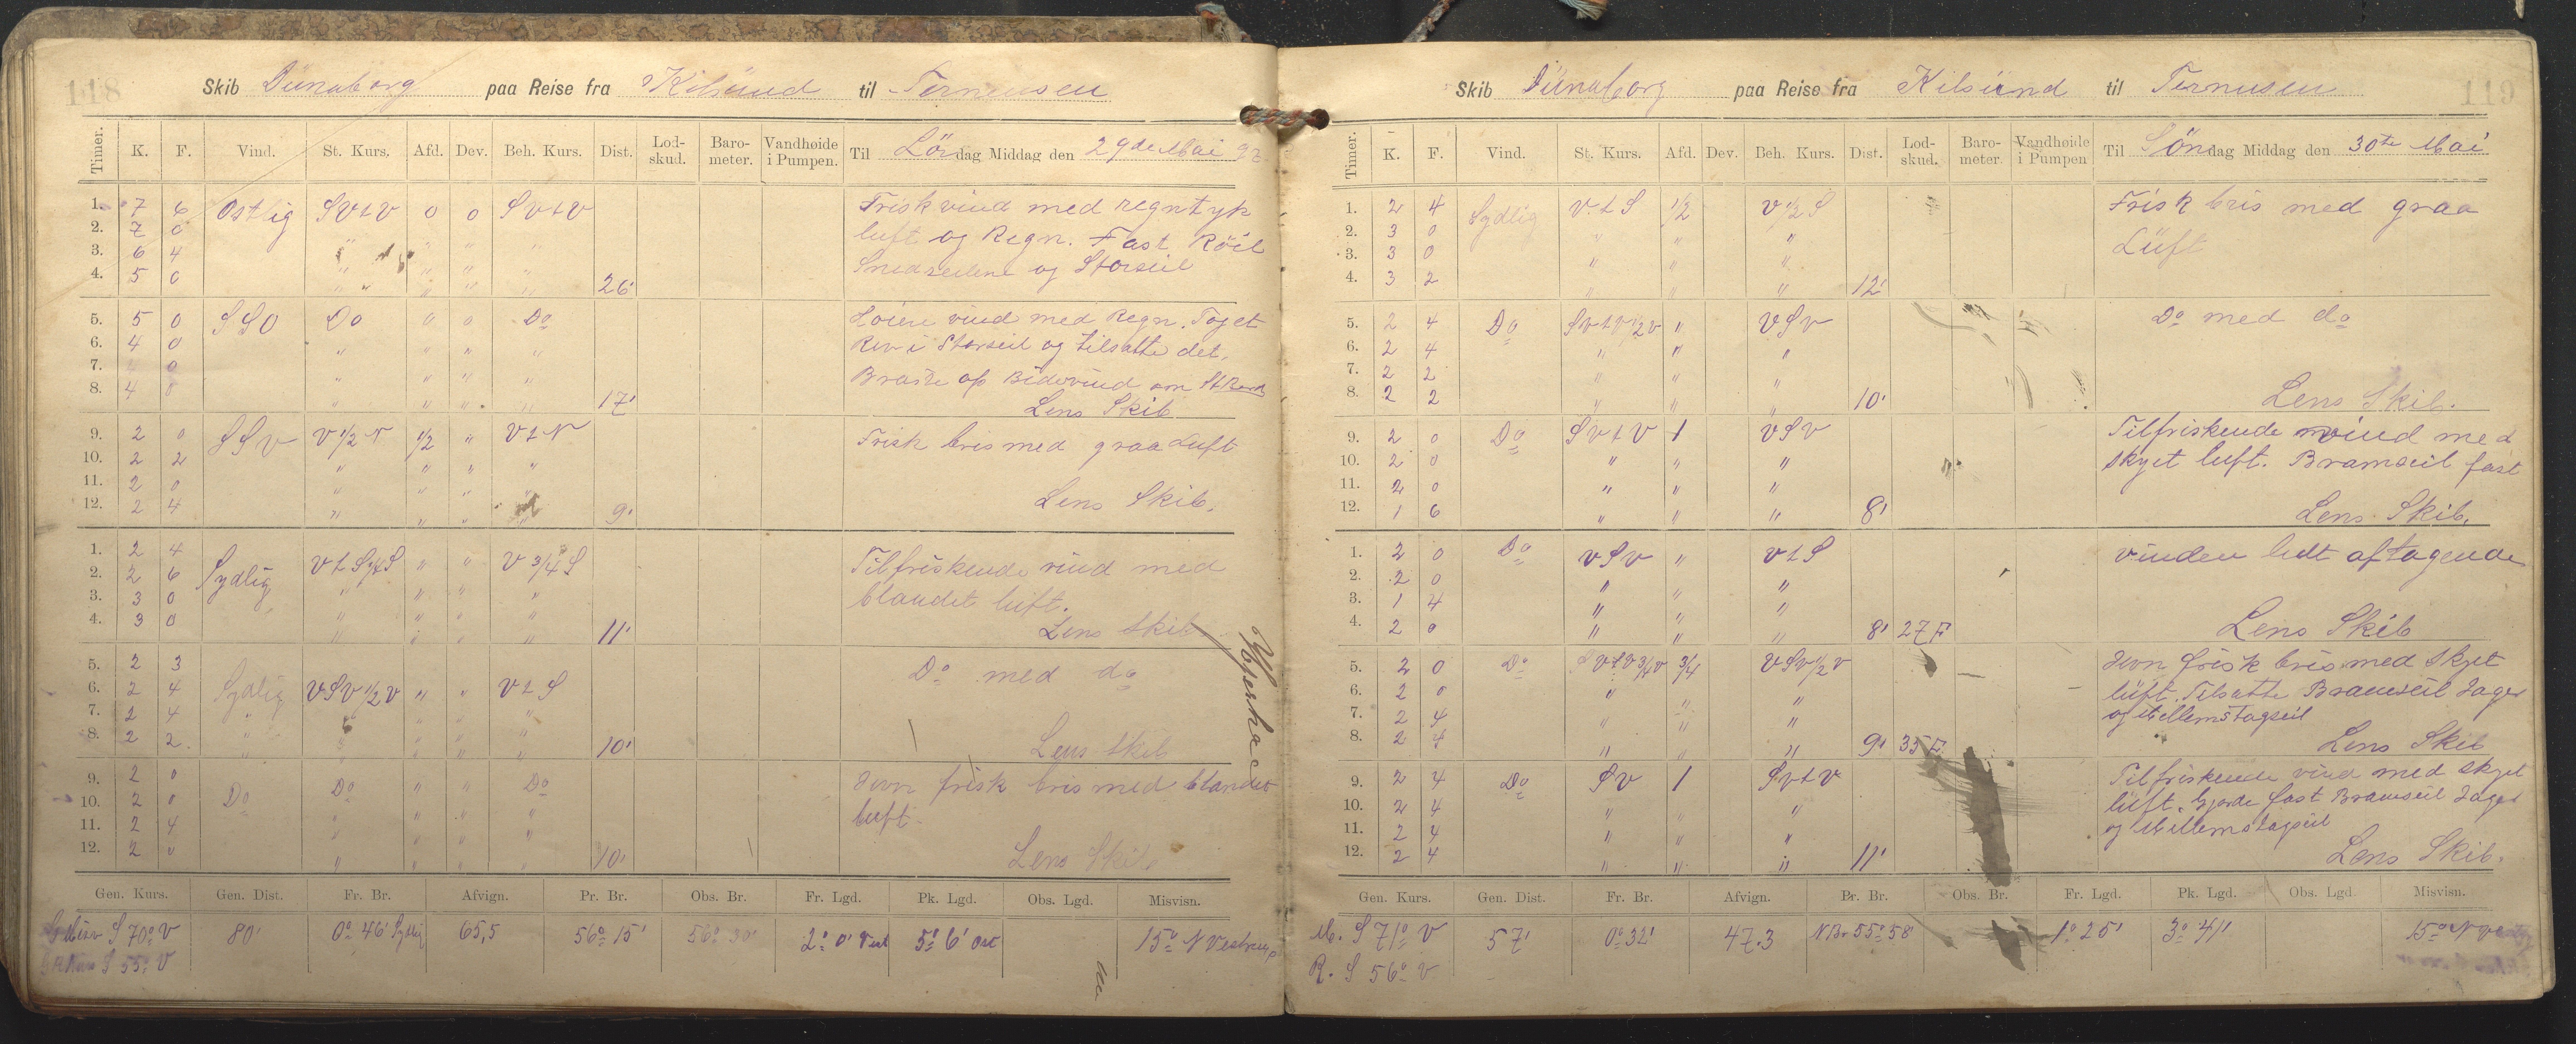 118
Skib Dünaborg paa Reise fra Kilsund til Terneusen
Timer. K. F. Vind. St. Kurs. Afd. Dev. Beh. Kurs. Dist. Lod-skud. Baro-meter. Vandhøide i Pumpen. Til Lördag Middag den 29de Mai 97
1. 7 6 Ostlig SVtV 0 0 SVtV Frisk vind med regntyk
2. 7 0 luft og Regn. Fast Röil
3. 6 4 " " " " Snedseilene og Storseil
4. 5 0 " " " " 26'
5. 5 0 SSO Do " 0 Do Löiere vind med Regn. Toget
6. 4 0 " " " " Rev i Storseil og tilsatte det.
7. 0 " " " " Braste op Bidevind
8. 4 0 " " " " 17' Lens Skib
9. 2 0 SSV V 1/2 N 1/2 " VtN Frisk bris med graa Luft
10. 2 2 " " " "
11. 2 0 " " " " Lens Skib.
12. 2 4 " " " " 9'
1. 2 4 Sydlig VtS 3/4 S " " V 3/4 S Tilfriskende vind med
2. 2 6 blandet luft.
3. 3 0 " " " "
4. 3 0 " " " " 11' Lens Skib
5. 2 3 Do med do
6. 2 4 Sydlig VSV 1/2 V " " VtS
7. 2 4 " " " " "
8. 2 2 " " " " " 10' Lens Skib
9. 2 0 Do Do " " Do Jevn frisk bris med blandet
10. 2 0 luft
11. 2 4 " " " "
12. 2 0 " " " " 10' Lens Skib
Gen. Kurs. Gen. Dist. Fr. Br. Afvign. Pr. Br. Obs. Br. Fr. Lgd. Pk. Lgd. Obs. Lgd. Misvisn.
S 70° V 80' 0° 46' Sydlig 65,5 56° 15' 56° 30' 2° 0' Vest 5° 6' Ost 15° N
S 55° V
119
Skib Dünaborg paa Reise fra Kilsund til Ternusen
Timer. K. F. Vind. St. Kurs. Afd. Dev. Beh. Kurs. Dist. Lod-skud. Baro-meter Vandhøide i Pumpen Til Söndag Middag den 30te Mai
1. 2 4 Sydlig VtS 1/2 V 1/2 S Frisk bris med graa
2. 3 0 " " " Lüft
3. 3 0 " " "
4. 3 2 " " " 12'
5. 2 4 Do SVtV 1/2 V " VSV Do med do
6. 2 4 " " "
7. 2 2 " " "
8. 2 2 " " " 10' Lens Skib.
9. 2 0 Do SVtV 1 VSV Tilfriskende vind med
10. 2 0 " " " skyet luft. Bramseil fast
11. 2 0 " " "
12. 1 6 " " " 8' Lens Skib.
1. 2 0 Do VSV " VtS vinden lidt aftagende
2. 2 0 " " "
3. 1 4 " " "
4. 2 0 " " " 8' 27 F Lens Skib
5. 2 0 Do SVtV 3/4 V 3/4 VSV 1/2 V Jevn frisk bris med skyet
6. 2 0 " " " lüft. Tilsatte Bramseil Jager
7. 2 4 " " " og Mellemstagseil
8. 2 4 " " " 9' 35 F Lens Skib
9. 2 4 Do SV 1 SVtV Tilfriskende vind med skyet
10. 2 4 " " " lüft. Gjorde fast Bramseil Jager
11. 2 4 " " " og Mellemstagseil
12. 2 4 " " " 11' Lens Skib.
Gen. Kurs. Gen. Dist. Fr. Br. Afvign. Pr. Br. Obs. Br. Fr. Lgd. Pk. Lgd. Obs. Lgd. Misvisn.
M. S 71° V 57' 0° 32' 47.3 N Br 55° 58' 1° 25' 3° 41' 15°
R. S 56° V